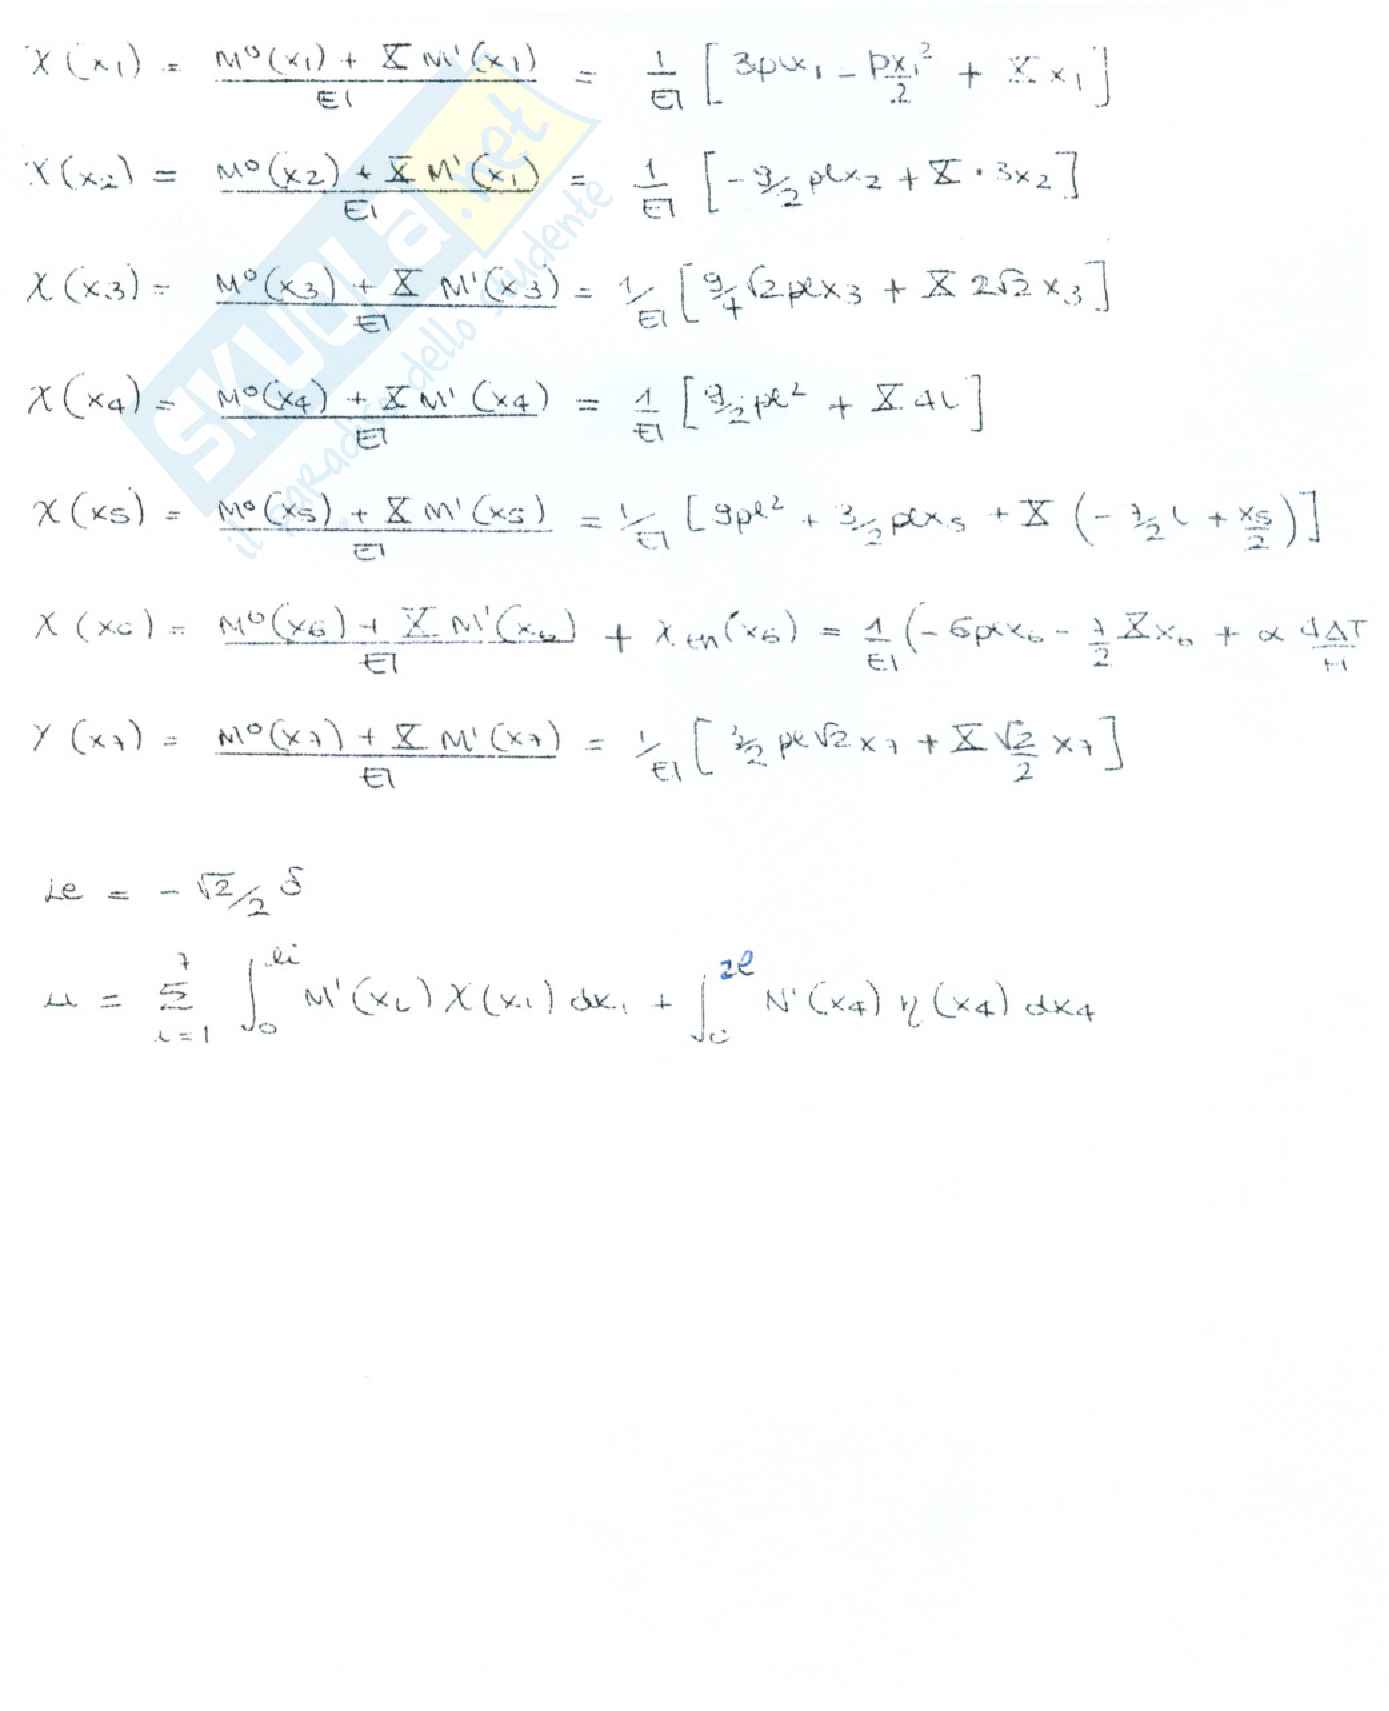 χ(x₁) = (M⁰(x₁) + X M'(x₁))/EI = 1/EI [3plx₁ - px₁²/2 + X x₁]
χ(x₂) = (M⁰(x₂) + X M'(x₁))/EI = 1/EI [-9/2 plx₂ + X · 3x₂]
χ(x₃) = (M⁰(x₃) + X M'(x₃))/EI = 1/EI [9/4 √2 plx₃ + X 2√2 x₃]
χ(x₄) = (M⁰(x₄) + X M'(x₄))/EI = 1/EI [9/2 pl² + X 4l]
χ(x₅) = (M⁰(x₅) + X M'(x₅))/EI = 1/EI [9pl² + 3/2 plx₅ + X (-7/2 l + x₅/2)]
χ(x₆) = (M⁰(x₆) + X M'(x₆))/EI + χ_en(x₆) = 1/EI (-6plx₆ - 7/2 X x₆ + α 4ΔT/H
χ(x₇) = (M⁰(x₇) + X M'(x₇))/EI = 1/EI [3/2 pl√2 x₇ + X √2/2 x₇]
Le = - √2/2 δ
Li = Σ_{i=1}^{7} ∫₀^{li} M'(xᵢ) χ(xᵢ) dxᵢ + ∫₀^{2l} N'(x₄) η(x₄) dx₄
SKUOLA.net
il paradiso dello studente